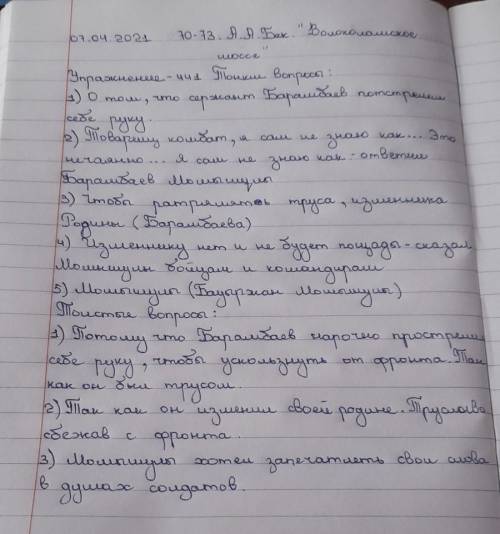 07.04.2021 70-73. А.А.Бек. "Волоколамское
шоссе"
Упражнение-441 Тонкие вопросы:
1) О том, что сержант Барамбаев потстрелил
себе руку.
2) Товарищ комбат, я сам не знаю как... Это
нечаянно... Я сам не знаю как - ответил
Барамбаев Момышулы
3) Чтобы растрелять труса, изменника
Родины (Барамбаева)
4) Изменнику нет и не будет пощады - сказал
Момышулы бойцам и командирам
5) Момышулы (Бауыржан Момышулы)
Толстые вопросы:
1) Потому что Барамбаев нарочно прострелил
себе руку, чтобы ускользнуть от фронта. Так
как он был трусом.
2) Так как он изменил своей родине. Трусливо
сбежав с фронта.
3) Момышулы хотел запечатлеть свои слова
в душах солдатов.